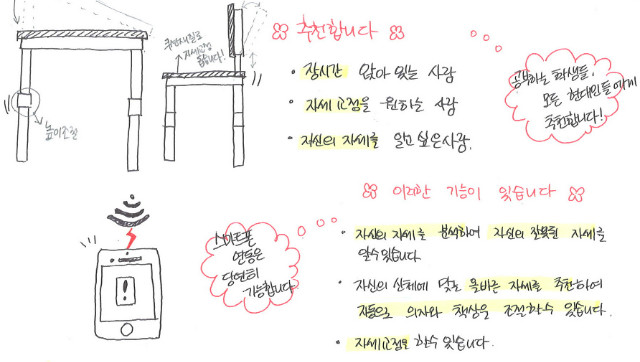 추천합니다
장시간 앉아 있는 사람
자세 교정을 원하는 사람
자신의 자세를 알고 싶은 사람.
공부하는 학생들,
모든 현대인들에게
추천합니다!
높이조절
이러한 기능이 있습니다
스마트폰
연동은
당연히
가능합니다
자신의 자세를 분석하여 자신의 잘못된 자세를
알 수 있습니다
자신의 신체에 맞는 올바른 자세를 추천하여
자동으로 의자와 책상을 조절할 수 있습니다.
자세교정을 할 수 있습니다.